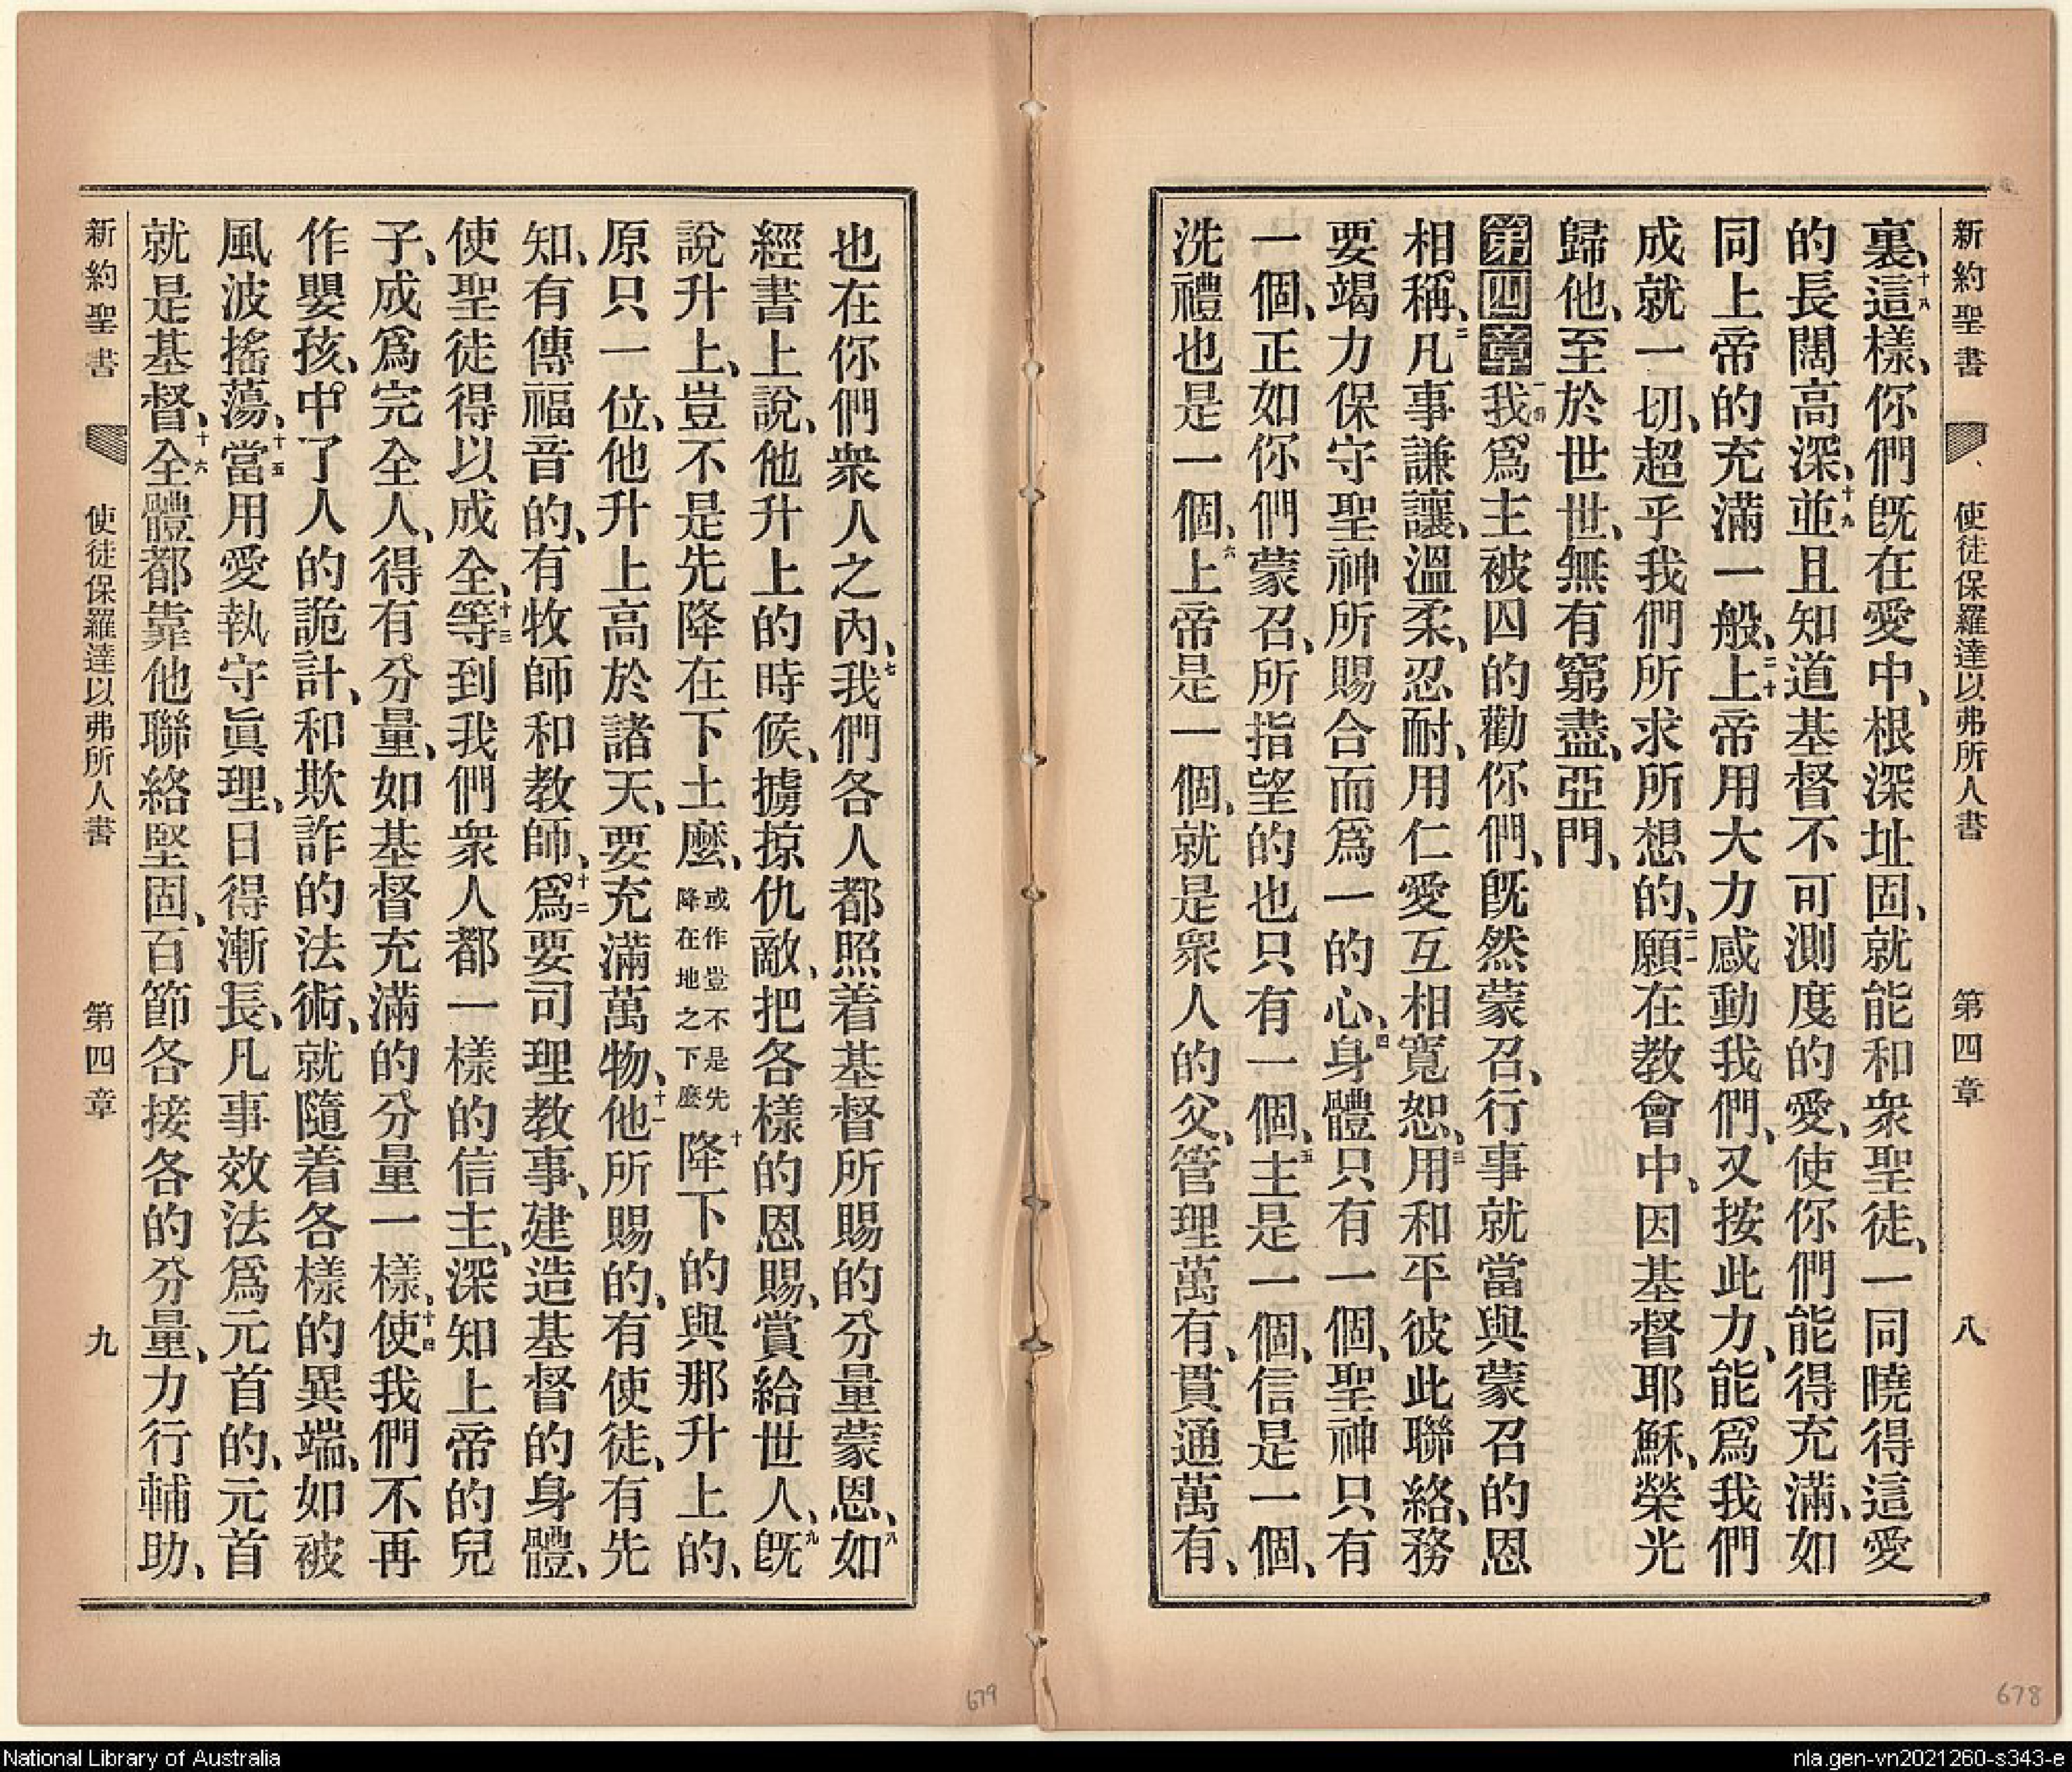 新約聖書 使徒保羅達以弗所人書 第四章 八
裏、十八這樣、你們旣在愛中、根深址固、就能和衆聖徒、一同曉得這愛
的長闊高深、十九並且知道基督不可測度的愛、使你們能得充滿、如
同上帝的充滿一般、二十上帝用大力感動我們、又按此力、能爲我們
成就一切、超乎我們所求所想的、二一願在教會中、因基督耶穌、榮光
歸他、至於世世、無有窮盡、亞門、
第四章 一我爲主被囚的勸你們、旣然蒙召、行事就當與蒙召的恩
相稱、二凡事謙讓、溫柔、忍耐、用仁愛互相寬恕、三用和平彼此聯絡、務
要竭力保守聖神所賜合而爲一的心、四身體只有一個、聖神只有
一個、正如你們蒙召、所指望的也只有一個、五主是一個、信是一個、
洗禮也是一個、六上帝是一個、就是衆人的父、管理萬有、貫通萬有、
也在你們衆人之內、七我們各人都照着基督所賜的分量蒙恩、八如
經書上說、他升上的時候、擄掠仇敵、把各樣的恩賜、賞給世人、九旣
說升上、豈不是先降在下土麽、或作豈不是先降在地之下麽 十降下的與那升上的、
原只一位、他升上高於諸天、要充滿萬物、十一他所賜的、有使徒、有先
知、有傳福音的、有牧師和教師、十二爲要司理教事、建造基督的身體、
使聖徒得以成全、十三等到我們衆人都一樣的信主、深知上帝的兒
子、成爲完全人、得有分量、如基督充滿的分量一樣、十四使我們不再
作嬰孩、中了人的詭計、和欺詐的法術、就隨着各樣的異端、如被
風波搖蕩、十五當用愛執守眞理、日得漸長、凡事效法爲元首的、元首
就是基督、十六全體都靠他聯絡堅固、百節各接各的分量、力行輔助、
新約聖書 使徒保羅達以弗所人書 第四章 九
679
678
National Library of Australia
nla.gen-vn2021260-s343-e